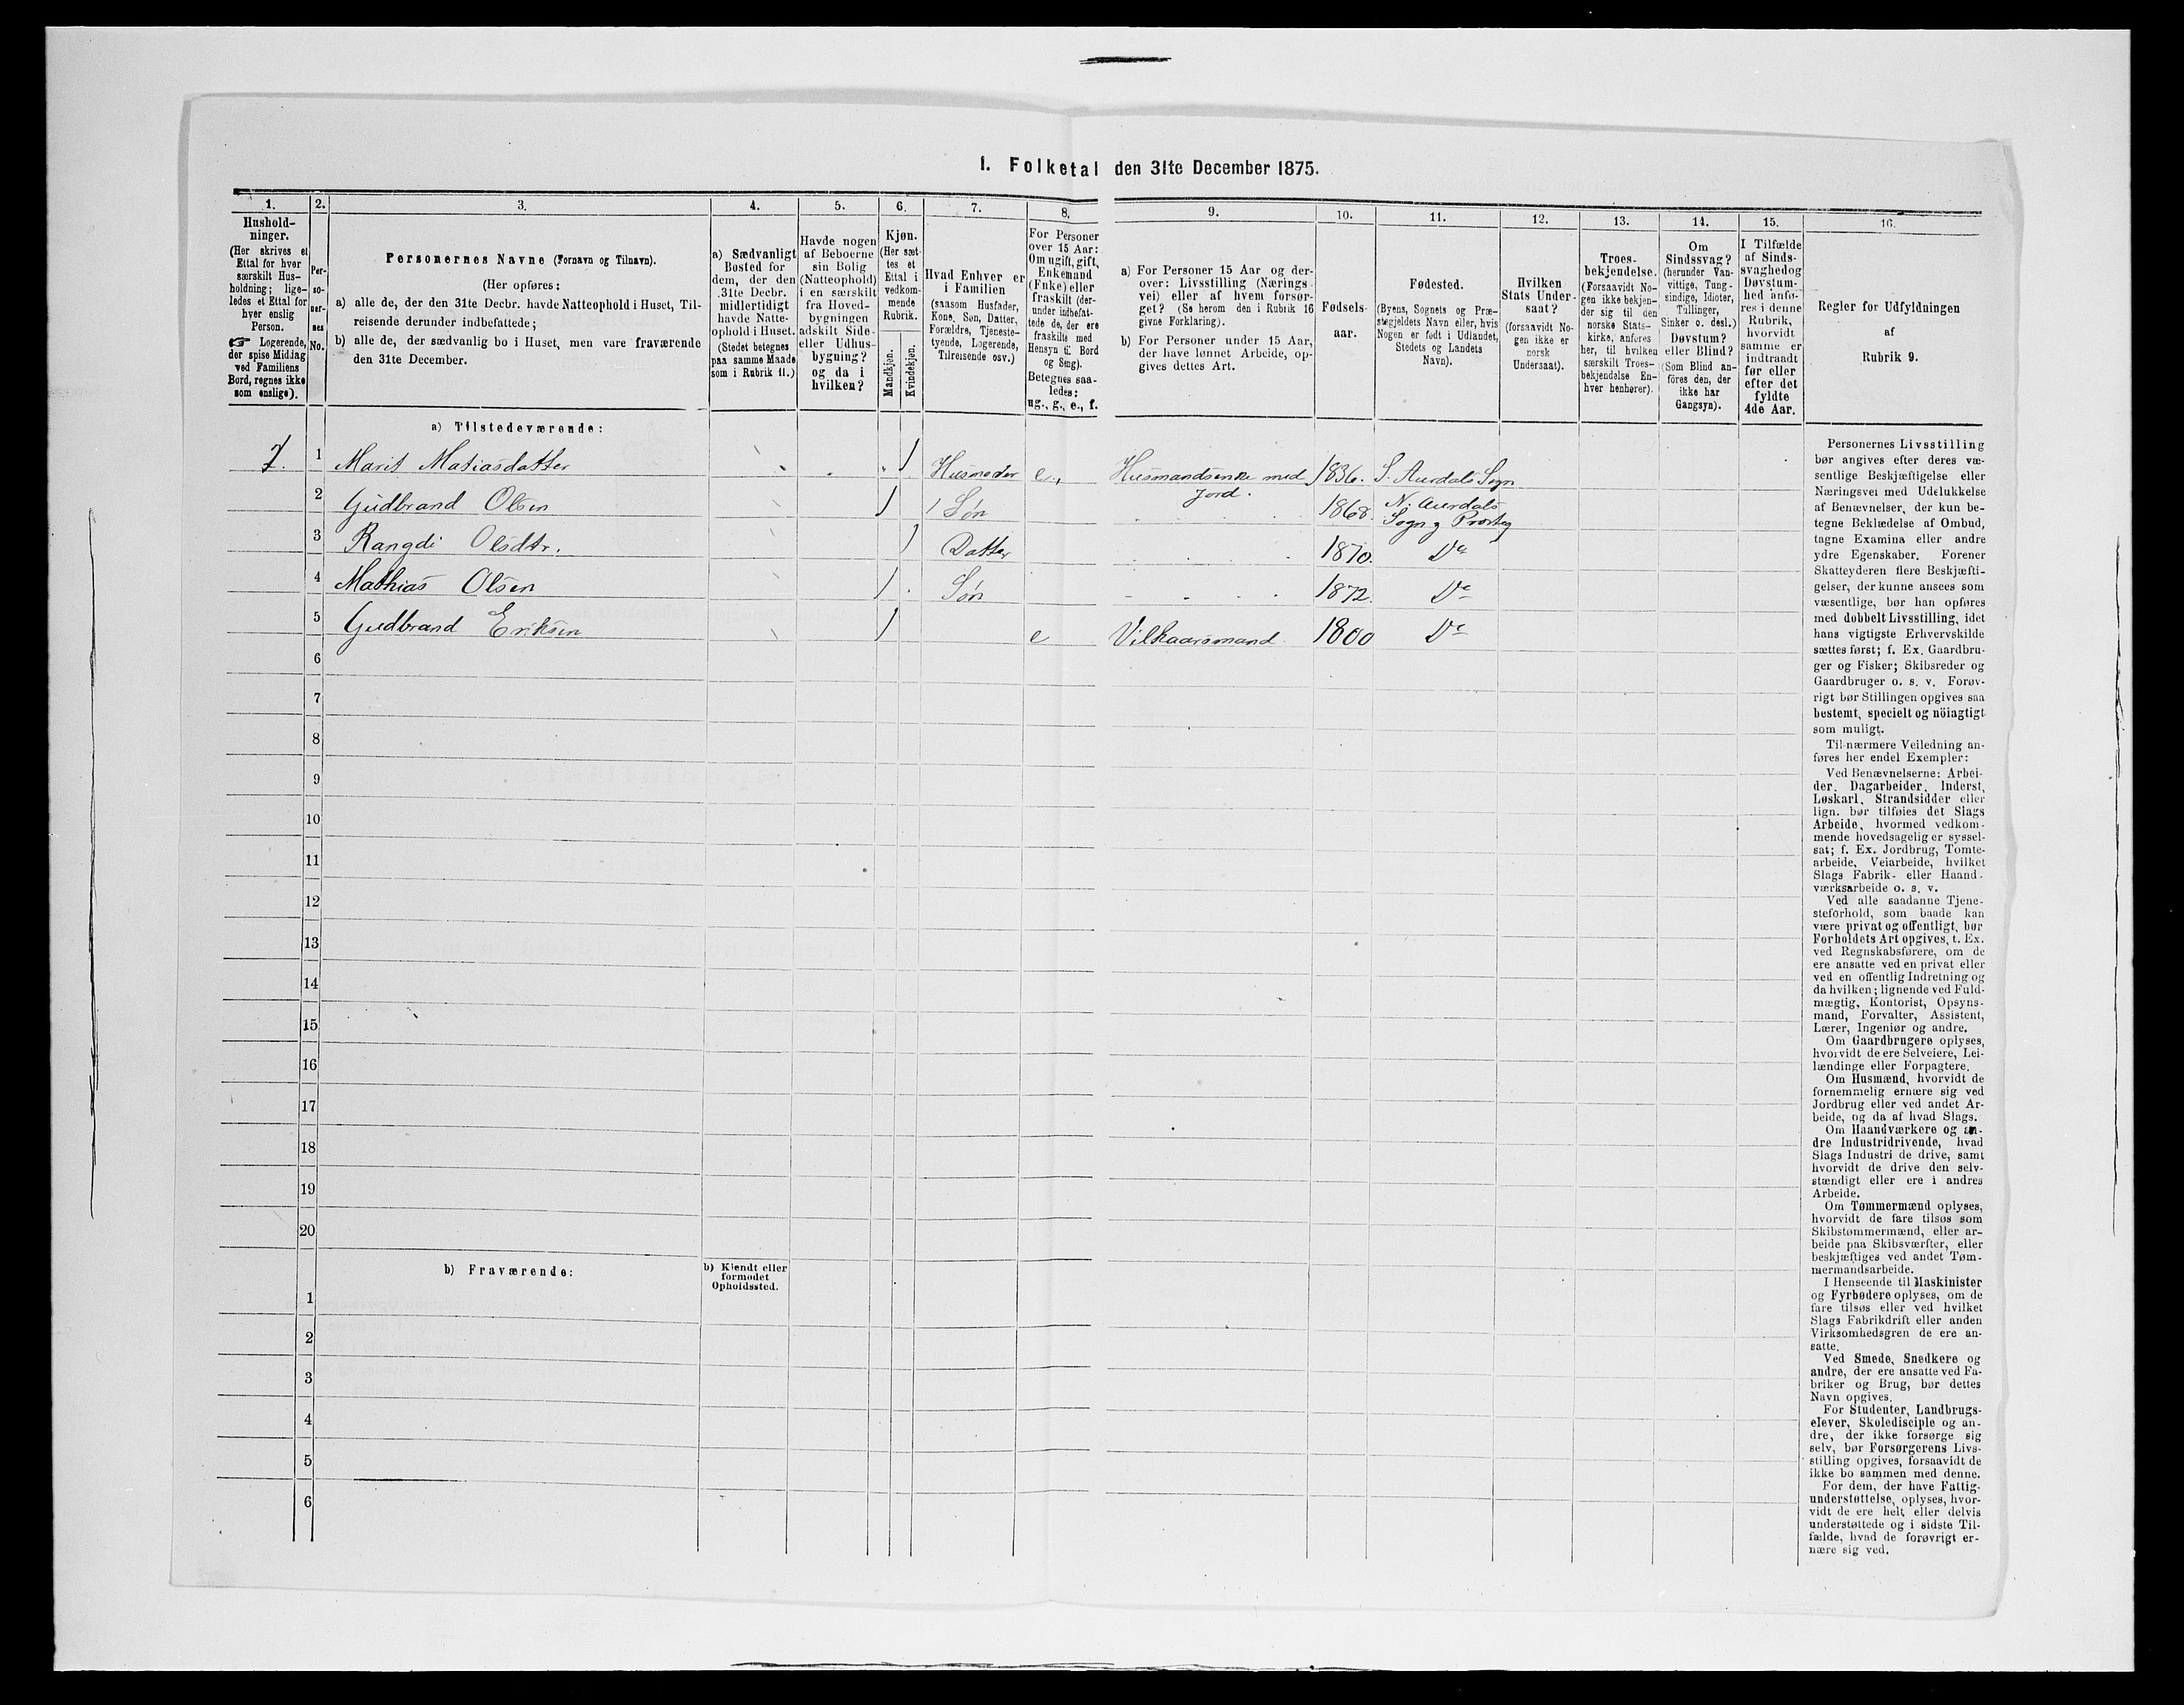 1. Folketal den 31te December 1875.
1.
Hushold-
ninger.
(Her skrives et
Ettal for hver
særskilt Hus-
holdning; lige-
ledes et Ettal for
hver enslig
Person.
☛ Logerende,
der spise Middag
ved Familiens
Bord, regnes ikke
som enslige).
2.
Per-
so-
ner-
nes
No.
3.
Personernes Navne (Fornavn og Tilnavn).
(Her opføres:
a) alle de, der den 31te Decbr. havde Natteophold i Huset, Til-
reisende derunder indbefattede;
b) alle de, der sædvanlig bo i Huset, men vare fraværende
den 31te December.
4.
a) Sædvanligt
Bosted for
dem, der den
31te Decbr.
midlertidigt
havde Natte-
ophold i Huset.
(Stedet betegnes
paa samme Maade
som i Rubrik 11.)
5.
Havde nogen
af Beboerne
sin Bolig
(Natteophold)
i en særskilt
fra Hoved-
bygningen
adskilt Side-
eller Udhus-
bygning?
og da i
hvilken?
6.
Kjøn.
(Her sæt-
tes et
Ettal i
vedkom-
mende
Rubrik.
Mandkjøn.
Kvindekjøn.
7.
Hvad Enhver er
i Familien
(saasom Husfader,
Kone, Søn, Datter,
Forældre, Tjeneste-
tyende, Logerende,
Tilreisende osv.)
8.
For Personer
over 15 Aar:
Om ugift, gift,
Enkemand
(Enke) eller
fraskilt (der-
under indbefat-
tede de, der ere
fraskilte med
Hensyn til Bord
og Seng).
Betegnes saa-
ledes:
ug., g., e., f.
9.
a) For Personer 15 Aar og der-
over: Livsstilling (Nærings-
vei) eller af hvem forsør-
get? (Se herom den i Rubrik 16
givne Forklaring).
b) For Personer under 15 Aar,
der have lønnet Arbeide, op-
gives dettes Art.
10.
Fødsels-
aar.
11.
Fødested.
(Byens, Sognets og Præ-
stegjeldets Navn eller, hvis
Nogen er født i Udlandet,
Stedets og Landets
Navn).
12.
Hvilken
Stats Under-
saat?
(forsaavidt No-
gen ikke er
norsk
Undersaat).
13.
Troes-
bekjendelse.
(Forsaavidt No-
gen ikke bekjen-
der sig til den
norske Stats-
kirke, anføres
her, til hvilken
særskilt Troes-
bekjendelse En-
hver henhører).
14.
Om
Sindssvag?
(herunder Van-
vittige, Tung-
sindige, Idioter,
Tullinger,
Sinker o. desl.)
Døvstum?
eller Blind?
(Som Blind an-
føres den, der
ikke har
Gangsyn).
15.
I Tilfælde
af Sinds-
svaghed og
Døvstum-
hed anfø-
res i denne
Rubrik,
hvorvidt
samme er
indtraadt
før eller
efter det
fyldte
4de Aar.
16.
Regler for Udfyldningen
af
Rubrik 9.
a) Tilstedeværende:
1. 1 Marit Matiasdatter 1 Husmoder e., Husmandsenke med Jord. 1836. S. Aurdals Sogn
2 Gudbrand Olsen 1 Søn 1868 N. Aurdals Sogn og Prsteg
3 Rangdi Olsdtr. 1 Datter 1870. Do
4 Mathias Olsen 1 Søn 1872. Do
5 Gudbrand Eriksen 1 e Vilkaarsmand 1800 Do
6
7
8
9
10
11
12
13
14
15
16
17
18
19
20
b) Fraværende:
b) Kjendt eller
formodet
Opholdssted.
1
2
3
4
5
6
Personernes Livsstilling
bør angives efter deres væ-
sentlige Beskjæftigelse eller
Næringsvei med Udelukkelse
af Benævnelser, der kun be-
tegne Beklædelse af Ombud,
tagne Examina eller andre
ydre Egenskaber. Forener
Skatteyderen flere Beskjæfti-
gelser, der kunne ansees som
væsentlige, bør han opføres
med dobbelt Livsstilling, idet
hans vigtigste Erhvervskilde
sættes først; f. Ex. Gaardbru-
ger og Fisker; Skibsreder og
Gaardbruger o. s. v. Forøv-
rigt bør Stillingen opgives saa
bestemt, specielt og nöiagtigt
som muligt.
Til nærmere Veiledning an-
føres her endel Exempler:
Ved Benævnelserne: Arbei-
der, Dagarbeider, Inderst,
Løskarl, Strandsidder eller
lign. bør tilføies det Slags
Arbeide, hvormed vedkom-
mende hovedsagelig er syssel-
sat; f. Ex. Jordbrug, Tomte-
arbeide, Veiarbeide, hvilket
Slags Fabrik- eller Haand-
værksarbeide o. s. v.
Ved alle saadanne Tjene-
steforhold, som baade kan
være privat og offentligt, bør
Forholdets Art opgives, t. Ex.
ved Regnskabsførere, om de
ere ansatte ved en privat eller
ved en offentlig Indretning og
da hvilken; lignende ved Fuld-
mægtig, Kontorist, Opsyns-
mand, Forvalter, Assistent,
Lærer, Ingeniør og andre.
Om Gaardbrugere oplyses,
hvorvidt de ere Selveiere, Lei-
lændinge eller Forpagtere.
Om Husmænd, hvorvidt de
fornemmelig ernære sig ved
Jordbrug eller ved andet Ar-
beide, og da af hvad Slags.
Om Haandværkere og an-
dre Industridrivende, hvad
Slags Industri de drive, samt
hvorvidt de drive den selv-
stændigt eller ere i andres
Arbeide.
Om Tømmermænd oplyses,
hvorvidt de fare tilsøs som
Skibstømmermænd, eller ar-
beide paa Skibsværfter, eller
beskjæftiges ved andet Tøm-
mermandsarbeide.
I Henseende til Maskinister
og Fyrbødere oplyses, om de
fare tilsøs eller ved hvilket
Slags Fabrikdrift eller anden
Virksomhedsgren de ere an-
satte.
Ved Smede, Snedkere og
andre, der ere ansatte ved Fa-
briker og Brug, bør dettes
Navn opgives.
For Studenter, Landbrugs-
elever, Skoledisciple og an-
dre, der ikke forsørge sig
selv, bør Forsørgerens Livs-
stilling opgives, forsaavidt de
ikke bo sammen med denne.
For dem, der have Fattig-
understøttelse, oplyses, hvor-
vidt de ere helt eller delvis
understøttede og i sidste Til-
fælde, hvad de forøvrigt er-
nære sig ved.